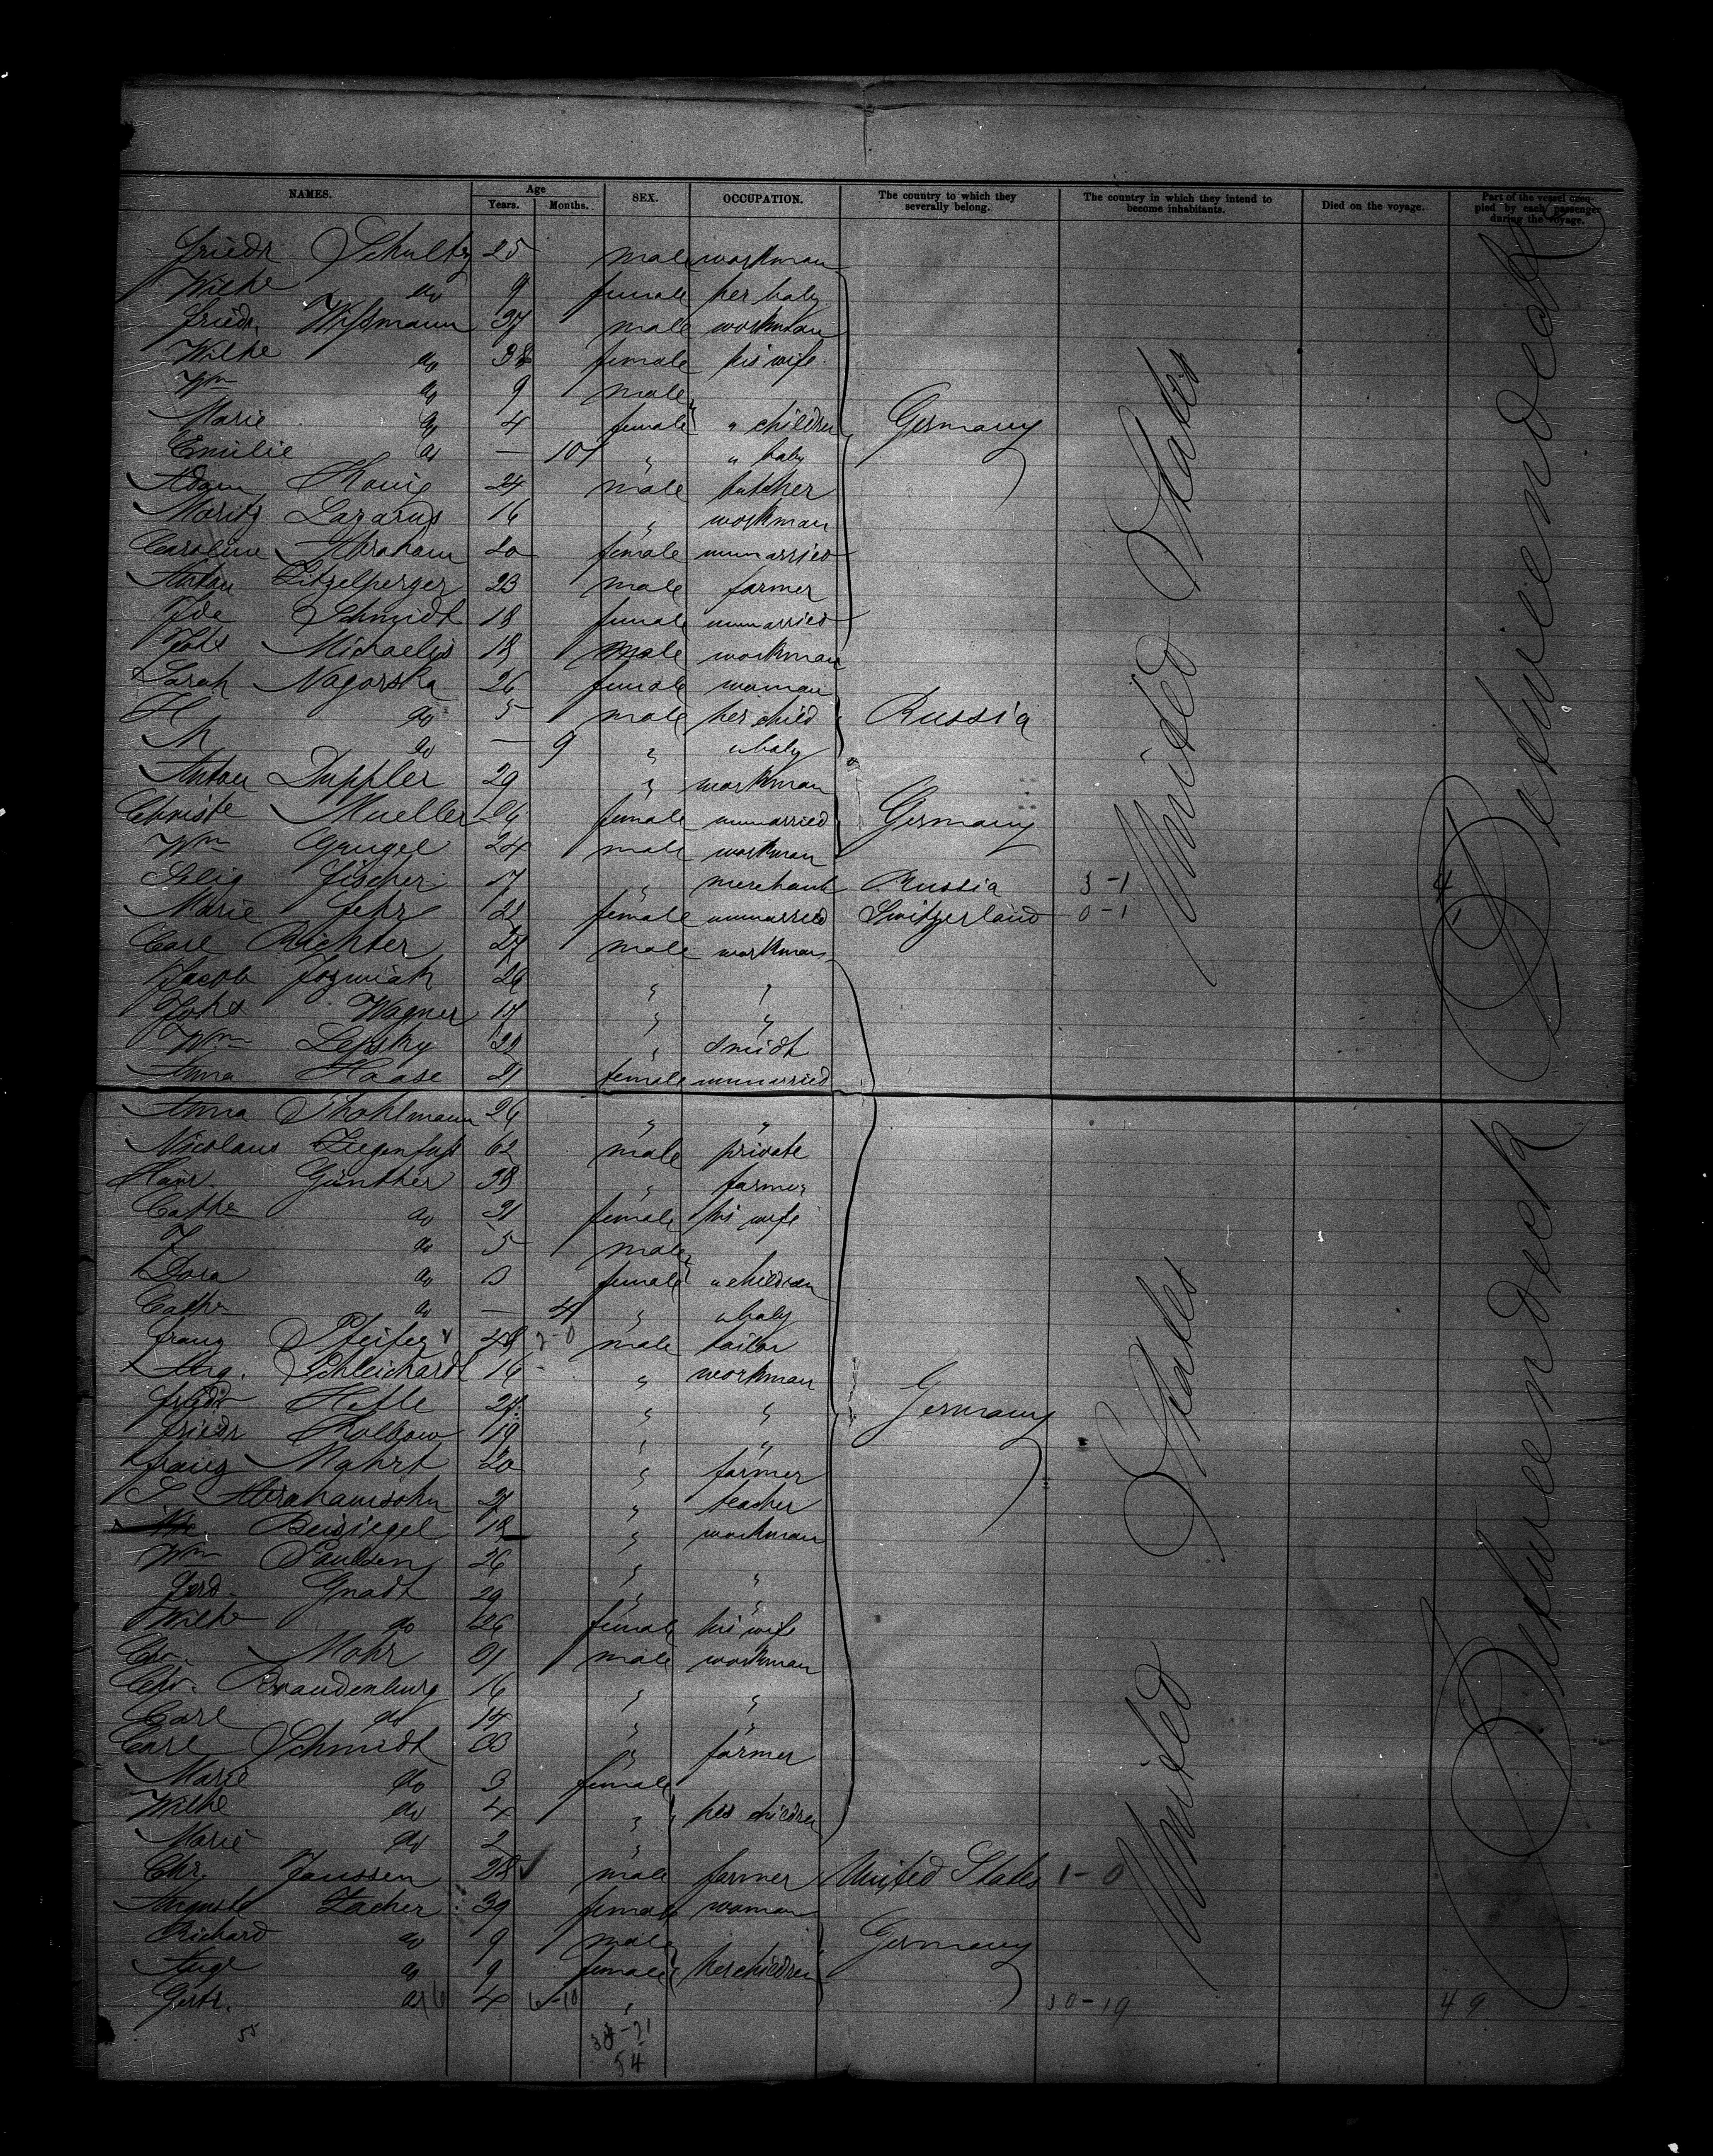 NAMES. Age Years. Months. SEX. OCCUPATION. The country to which they severally belong. The country in which they intend to become inhabitants. Died on the voyage. Part of the vessel occupied by each passenger during the voyage.
Friedr Schultz 25 male workman
Wilhe do 9 female her baby
Friedr. Wißmann 37 male workman
Wilhe do 38 female his wife
Wm do 9 male
Marie do 4 female " children Germany
Emilie do — 10 " " baby
Adam König 24 male butcher
Moritz Lazarus 16 " workman
Caroline Abraham 20 female unmarried
Anton Litzelperger 23 male farmer
Ida Schmidt 18 female unmarried
Johs Michaelis 18 male workman
Sarah Nagorska 26 female woman
H do 5 male her child Russia
M do — 9 " " baby
Anton Duppler 29 " workman
Christe Mueller female unmarried Germany
Wm Gengel 24 male workman
Selig Fischer 17 " merchant Russia 3-1
Marie Fehr 22 female unmarried Switzerland 0-1
Carl Richter 27 male workman
Jacob Jozwiak 26 " "
Johs Wagner 17 " "
Wm Lepsky 22 " smidt
Anna Haase 21 female unmarried
Anna Thohlmann 26 " "
Nicolaus Ziegenfuß 62 male private
Günther 38 " farmer
Cathe do 31 female his wife
J do 5 male
Dora do 3 female " children
Cathe do — 4 " " baby
Franz Pfeifer 48 7-0 male tailor
Aug. Schleichardt 16 " workman
Friedr Hefle 24 " " Germany
Friedr Kolbow 19 " "
Franz Mahrt 20 " farmer
S Abrahamsohn 27 " teacher
Beisiegel 18 " workman
Wm Paulsen 26 " "
Ferd. Gnadt 29 " "
Wilhe do 26 female his wife
Chr. Mohr 31 male workman
Chr. Brandenburg 16 " "
Carl do 14 " "
Carl Schmidt 33 " farmer
Marie do 3 female
Wilhe do 4 " his children
Marie do 2 "
Chr. Janssen 28 male farmer United States 1-0
Auguste Zacher 39 female woman
Richard do 9 male Germany
Auge do 9 female her children
Gertr. do 4 6-10 " 30-19 49
55
54
United States
United States
Betweendeck
Betweendeck